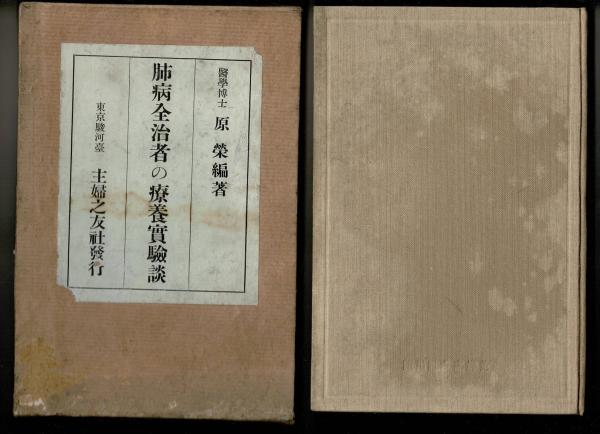 醫學博士 原榮編著
肺病全治者の療養實驗談
東京駿河臺 主婦之友社發行